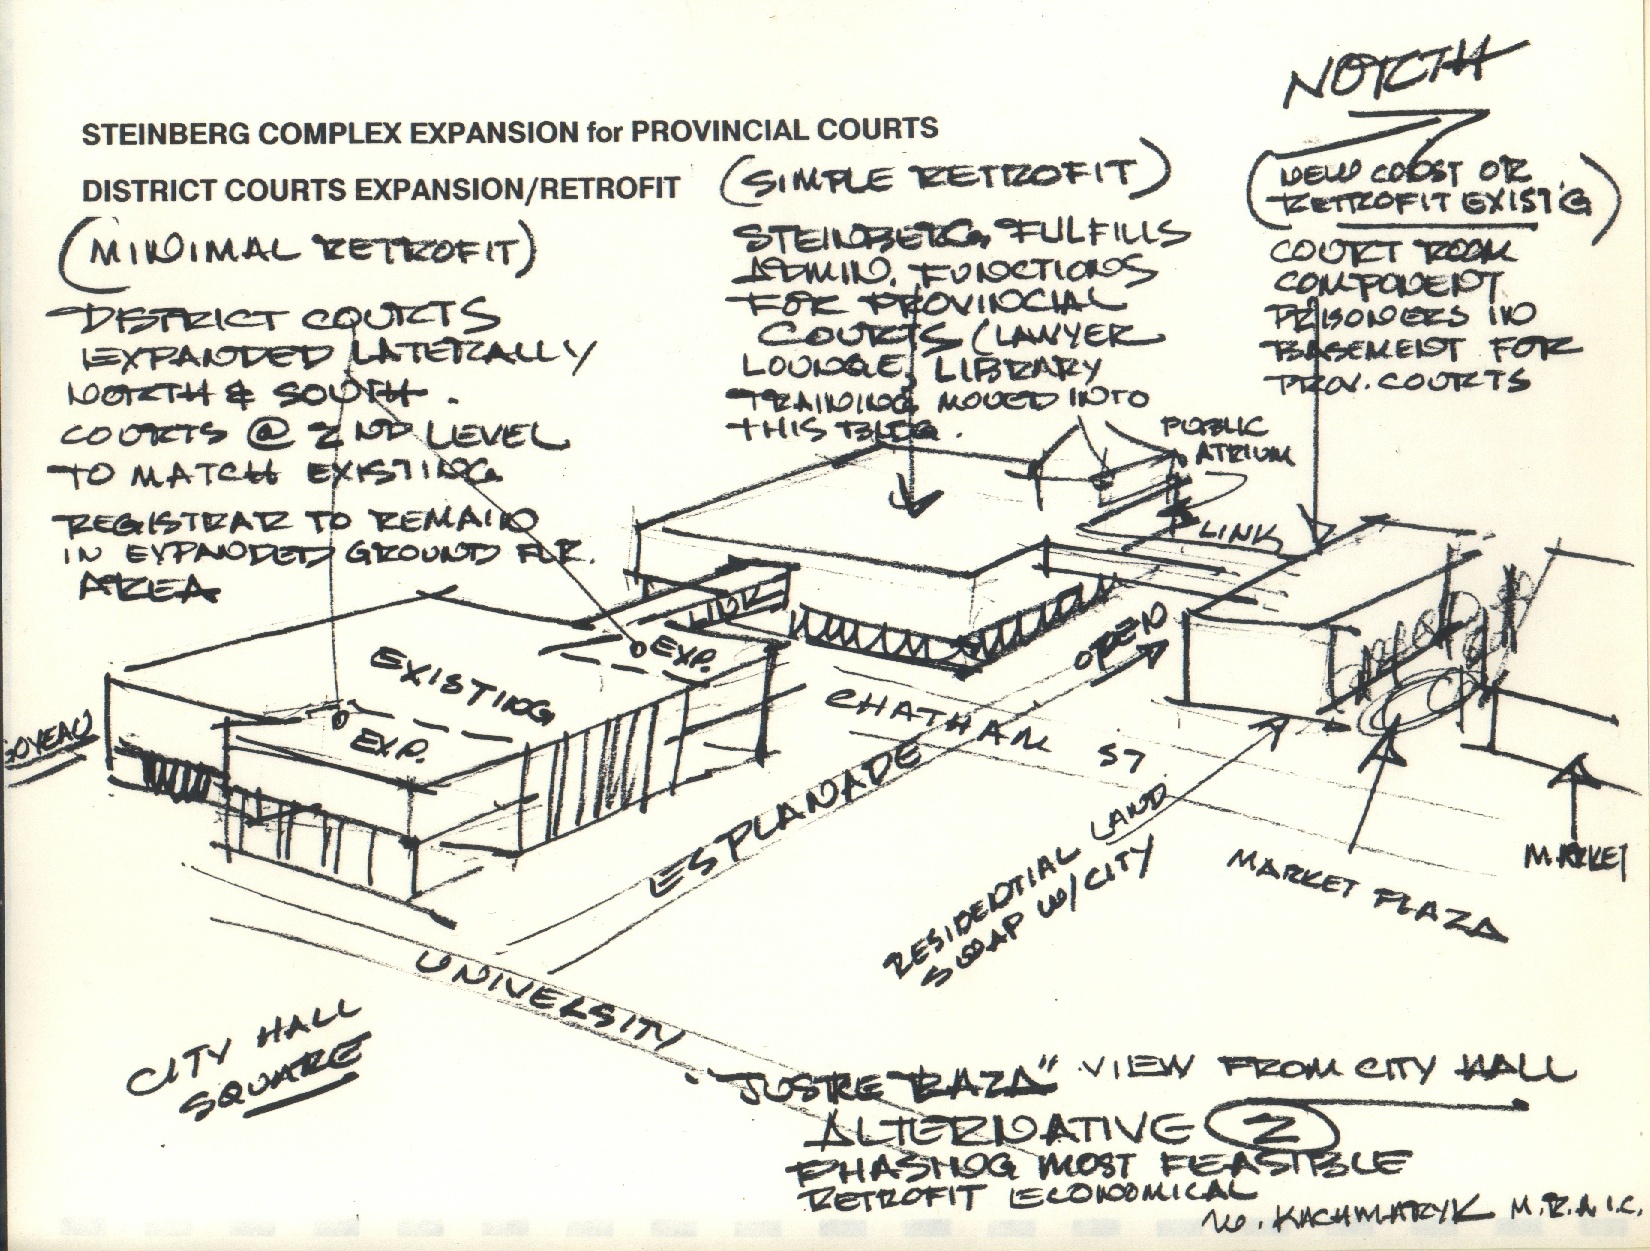 NORTH
STEINBERG COMPLEX EXPANSION for PROVINCIAL COURTS
DISTRICT COURTS EXPANSION/RETROFIT
(MINIMAL RETROFIT)
DISTRICT COURTS
EXPANDED LATERALLY
NORTH & SOUTH.
COURTS @ 2ND LEVEL
TO MATCH EXISTING
REGISTRAR TO REMAIN
IN EXPANDED GROUND FLR.
AREA
(SIMPLE RETROFIT)
STEINBERG FULFILLS
ADMIN. FUNCTIONS
FOR PROVINCIAL
COURTS (LAWYER
LOUNGE, LIBRARY
TRAINING MOVED INTO
THIS BLDG.
(NEW CONST OR
RETROFIT EXIST'G)
COURT ROOM
COMPONENT
PRISONERS IN
BASEMENT FOR
PROV. COURTS
PUBLIC
ATRIUM
LINK
LINK
EXP.
OPEN
EXISTING
EXP.
GOYEAU
CHATHAM ST
ESPLANADE
RESIDENTIAL LAND
SWAP W/ CITY
MARKET PLAZA
MARKET
UNIVERSITY
CITY HALL
SQUARE
"JUSTICE PLAZA" VIEW FROM CITY HALL
ALTERNATIVE 2
PHASING MOST FEASIBLE
RETROFIT ECONOMICAL
W. KACHMARYK M.R.A.I.C.